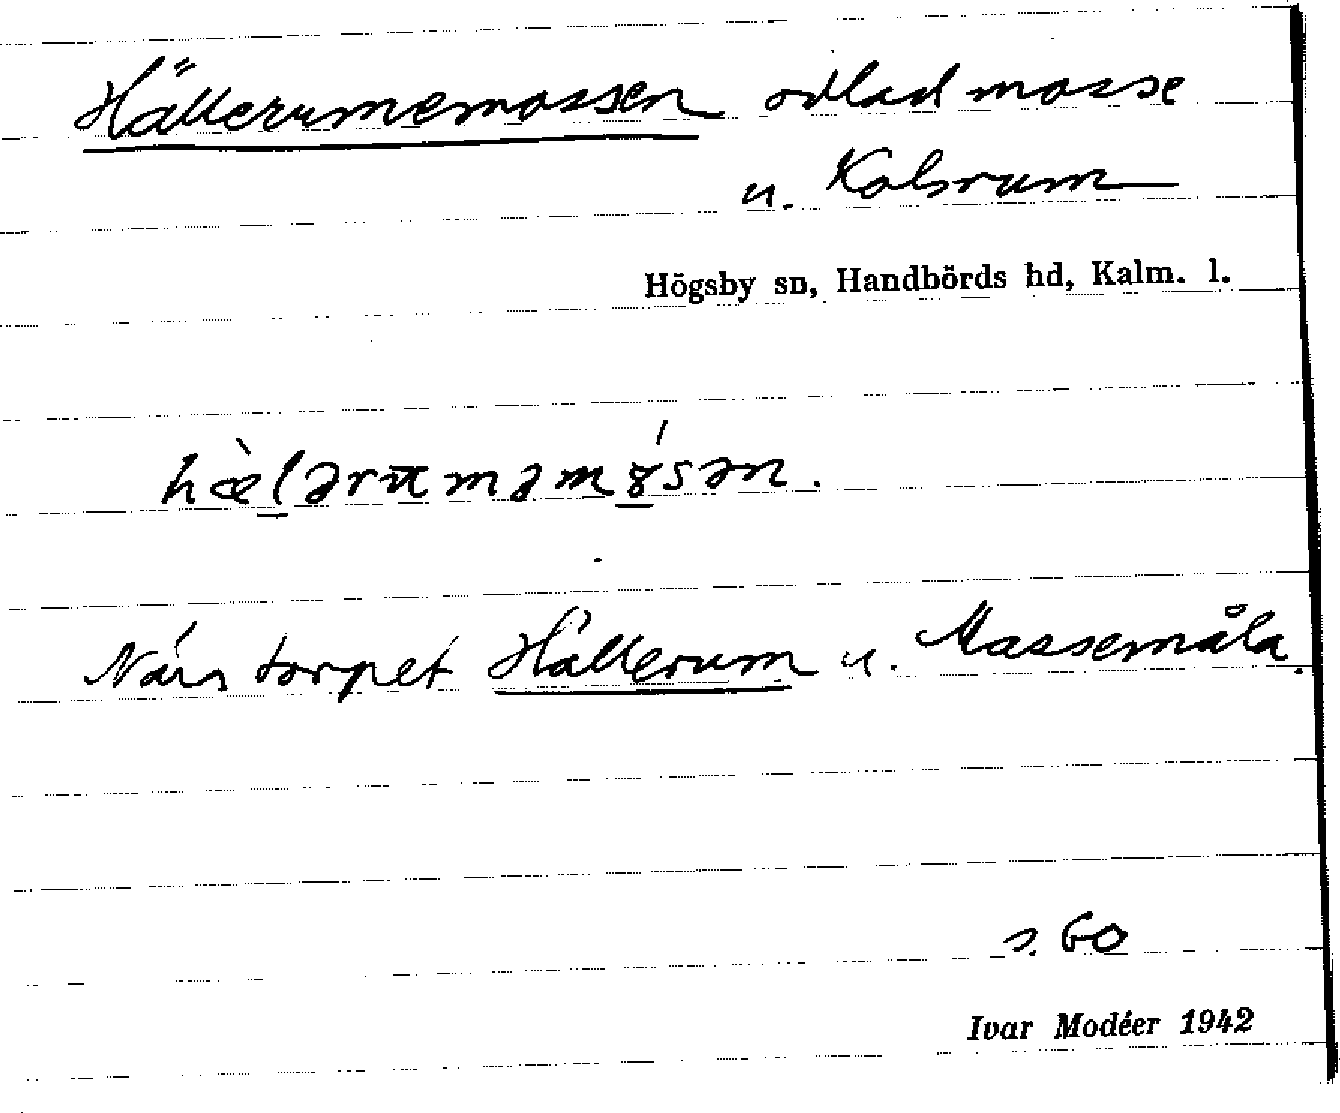 Hällerumemossen odlad mosse
u. Kolsrum
Högsby sn, Handbörds hd, Kalm. l.
hæ̀lərʉməmɤ́sən.
När torpet Hällerum u. Massemåla.
s. 60
Ivar Modéer 1942